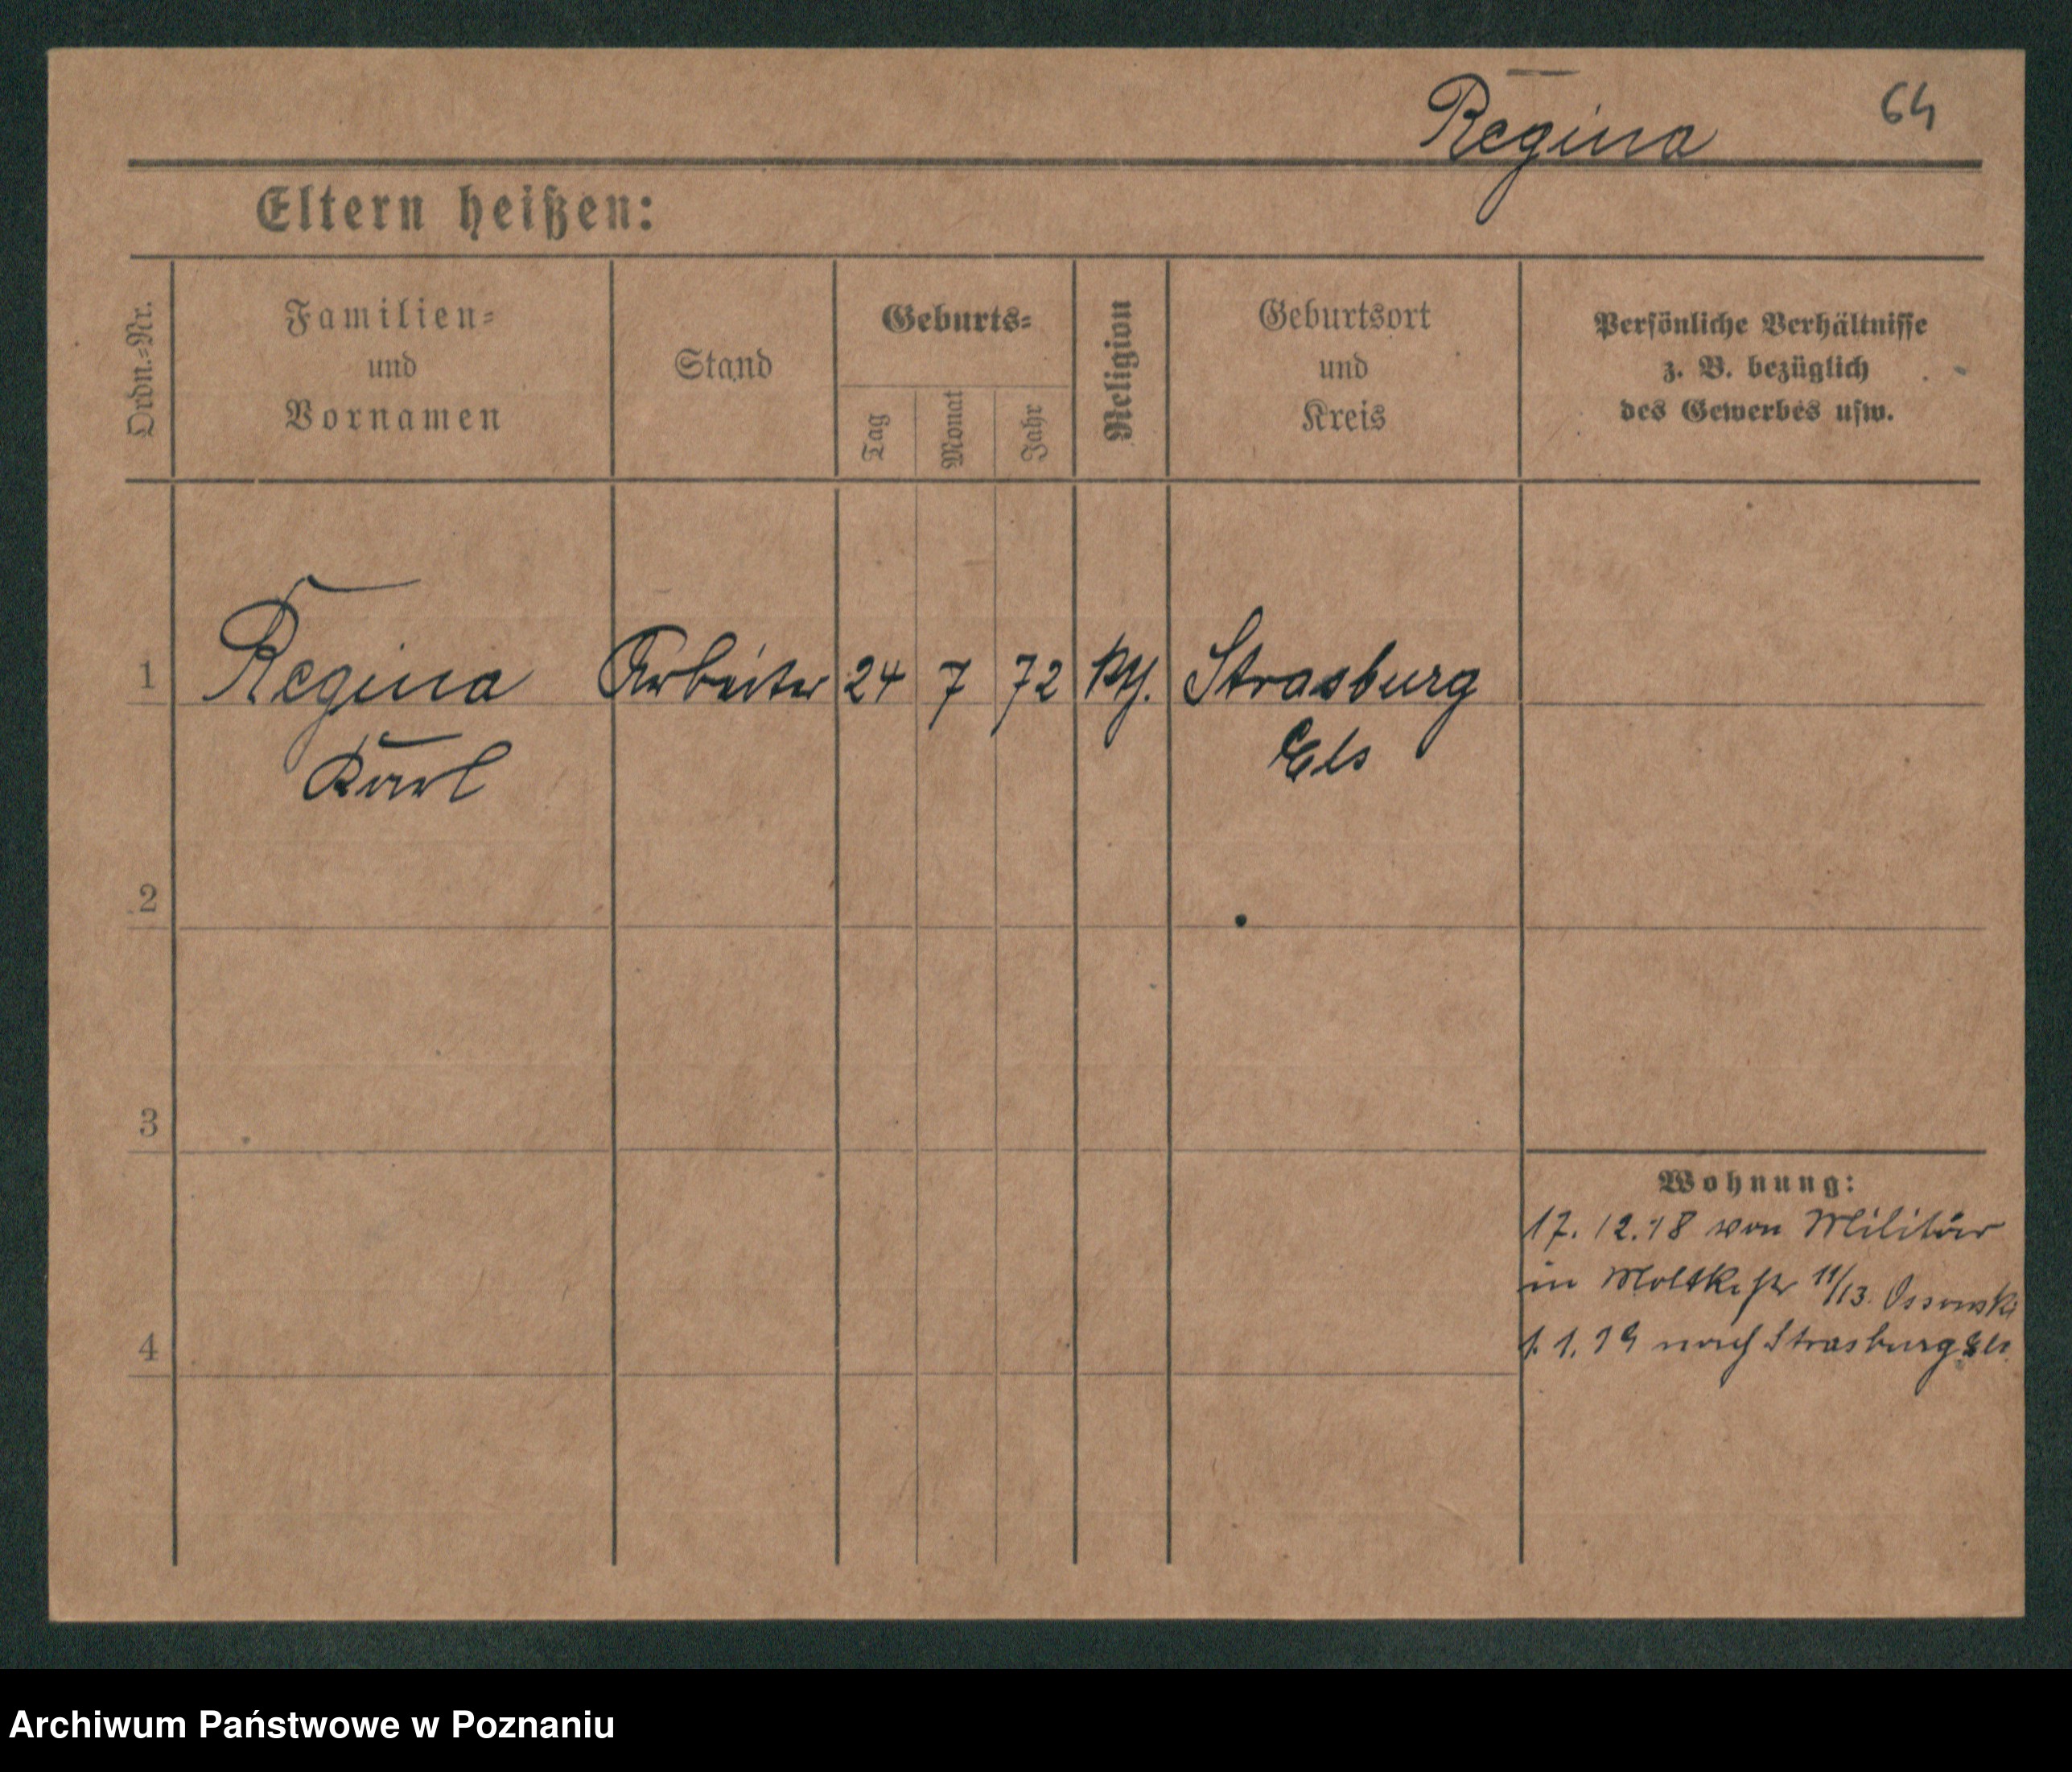 Regina 64
Eltern heißen:
Ordn.=Nr.
Familien=
und
Vornamen
Stand
Geburts=
Tag
Monat
Jahr
Religion
Geburtsort
und
Kreis
Persönliche Verhältnisse
z. B. bezüglich
des Gewerbes usw.
1 Regina Arbeiter 24 7 72 kth. Strasburg
Karl Els
2
3
Wohnung:
17. 12. 18 von Militär
in Moltkestr 11/13. Ossowski
4 1. 1. 19 nach Strasburg Els
Archiwum Państwowe w Poznaniu